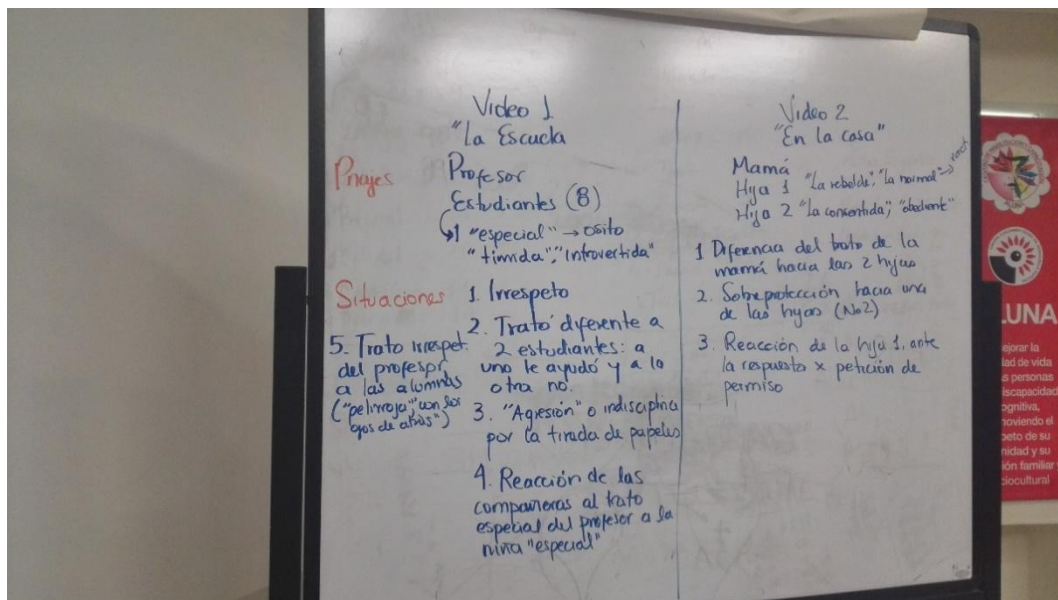 Video 1
"La Escuela
Pnajes
Profesor
Estudiantes (8)
1 "especial" → osito
"timida", "introvertida"
Situaciones
1. Irrespeto
2. Trato diferente a
2 estudiantes: a
uno le ayudó y a la
otra no.
3. "Agresión" o indisciplina
por la tirada de papeles
4. Reacción de las
compañeras al trato
especial del profesor a la
niña "especial"
5. Trato irrespet.
del profesor
a las alumnas
("pelirroja", con los
ojos de atrás")
Video 2
"En la casa"
Mamá
Hija 1 "La rebelde", "La normal" →
Hija 2 "La consentida", "obediente"
1 Diferencia del trato de la
mamá hacia las 2 hijas
2. Sobreprotección hacia una
de las hijas (No2)
3. Reacción de la hija 1, ante
la respuesta x petición de
permiso
LUNA
ejorar la
dad de vida
s personas
iscapacidad
ognitiva,
moviendo el
peto de su
nidad y su
ión familiar
ciocultural